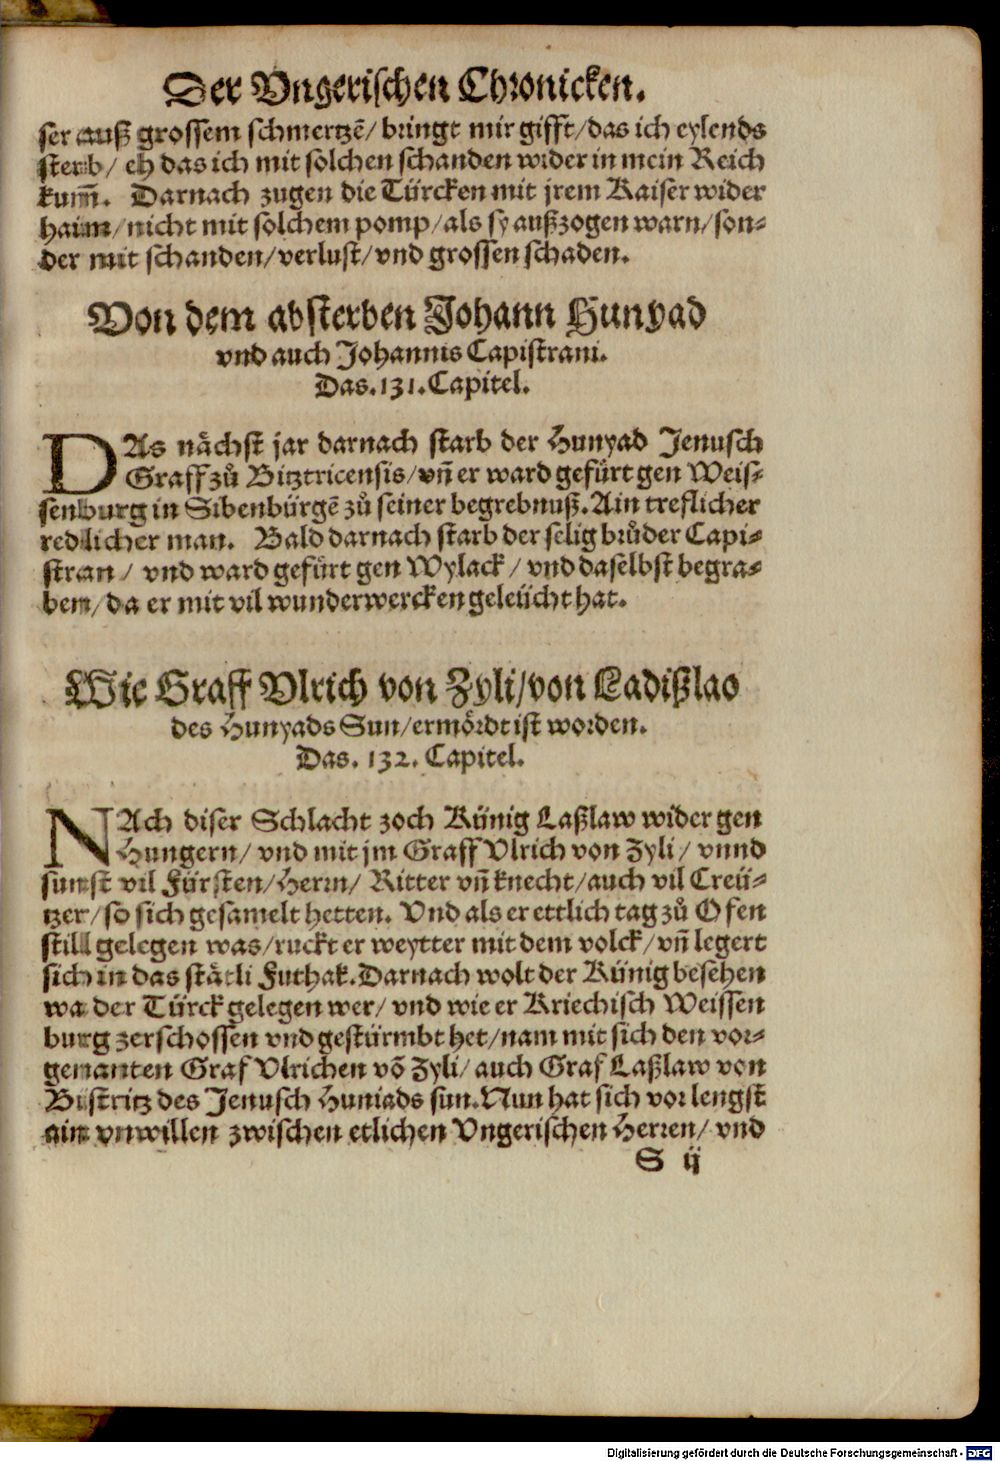 Der Vngerischen Chronicken.
ser auß grossem schmertzẽ/ bringt mir gifft/ das ich eylends
sterb/ eh das ich mit solchen schanden wider in mein Reich
kum̃. Darnach zugen die Türcken mit jrem Kaiser wider
haim/ nicht mit solchem pomp/ als sy außzogen warn/ son⸗
der mit schanden/ verlust/ vnd grossen schaden.
Von dem absterben Johann Hunyad
vnd auch Johannis Capistrani.
Das. 131. Capitel.
DAs nächst jar darnach starb der Hunyad Jenusch
Graff zů Bitztricensis/ vñ er ward gefürt gen Weis⸗
senburg in Sibenbürgẽ zů seiner begrebnuß. Ain treflicher
redlicher man. Bald darnach starb der selig brůder Capi⸗
stran/ vnd ward gefürt gen Wylack/ vnd daselbst begra⸗
ben/ da er mit vil wunderwercken geleücht hat.
Wie Graff Vlrich von Zyli/ von Ladißlao
des Hunyads Sun/ ermördt ist worden.
Das. 132. Capitel.
NAch diser Schlacht zoch Künig Laßlaw wider gen
Hungern/ vnd mit jm Graff Vlrich von Zyli/ vnnd
sunst vil Fürsten/ Herrn/ Ritter vñ knecht/ auch vil Creü⸗
tzer/ so sich gesamelt hetten. Vnd als er ettlich tag zů Ofen
still gelegen was/ ruckt er weytter mit dem volck/ vñ legert
sich in das stätli Futhak. Darnach wolt der Künig besehen
wa der Türck gelegen wer/ vnd wie er Kriechisch Weissen
burg zerschossen vnd gestürmbt het/ nam mit sich den vor⸗
genanten Graf Vlrichen võ Zyli/ auch Graf Laßlaw von
Bistritz des Jenusch Huniads sun. Nun hat sich vor lengst
ain vnwillen zwischen etlichen Vngerischen Herren/ vnd
S ij
Digitalisierung gefördert durch die Deutsche Forschungsgemeinschaft - DFG